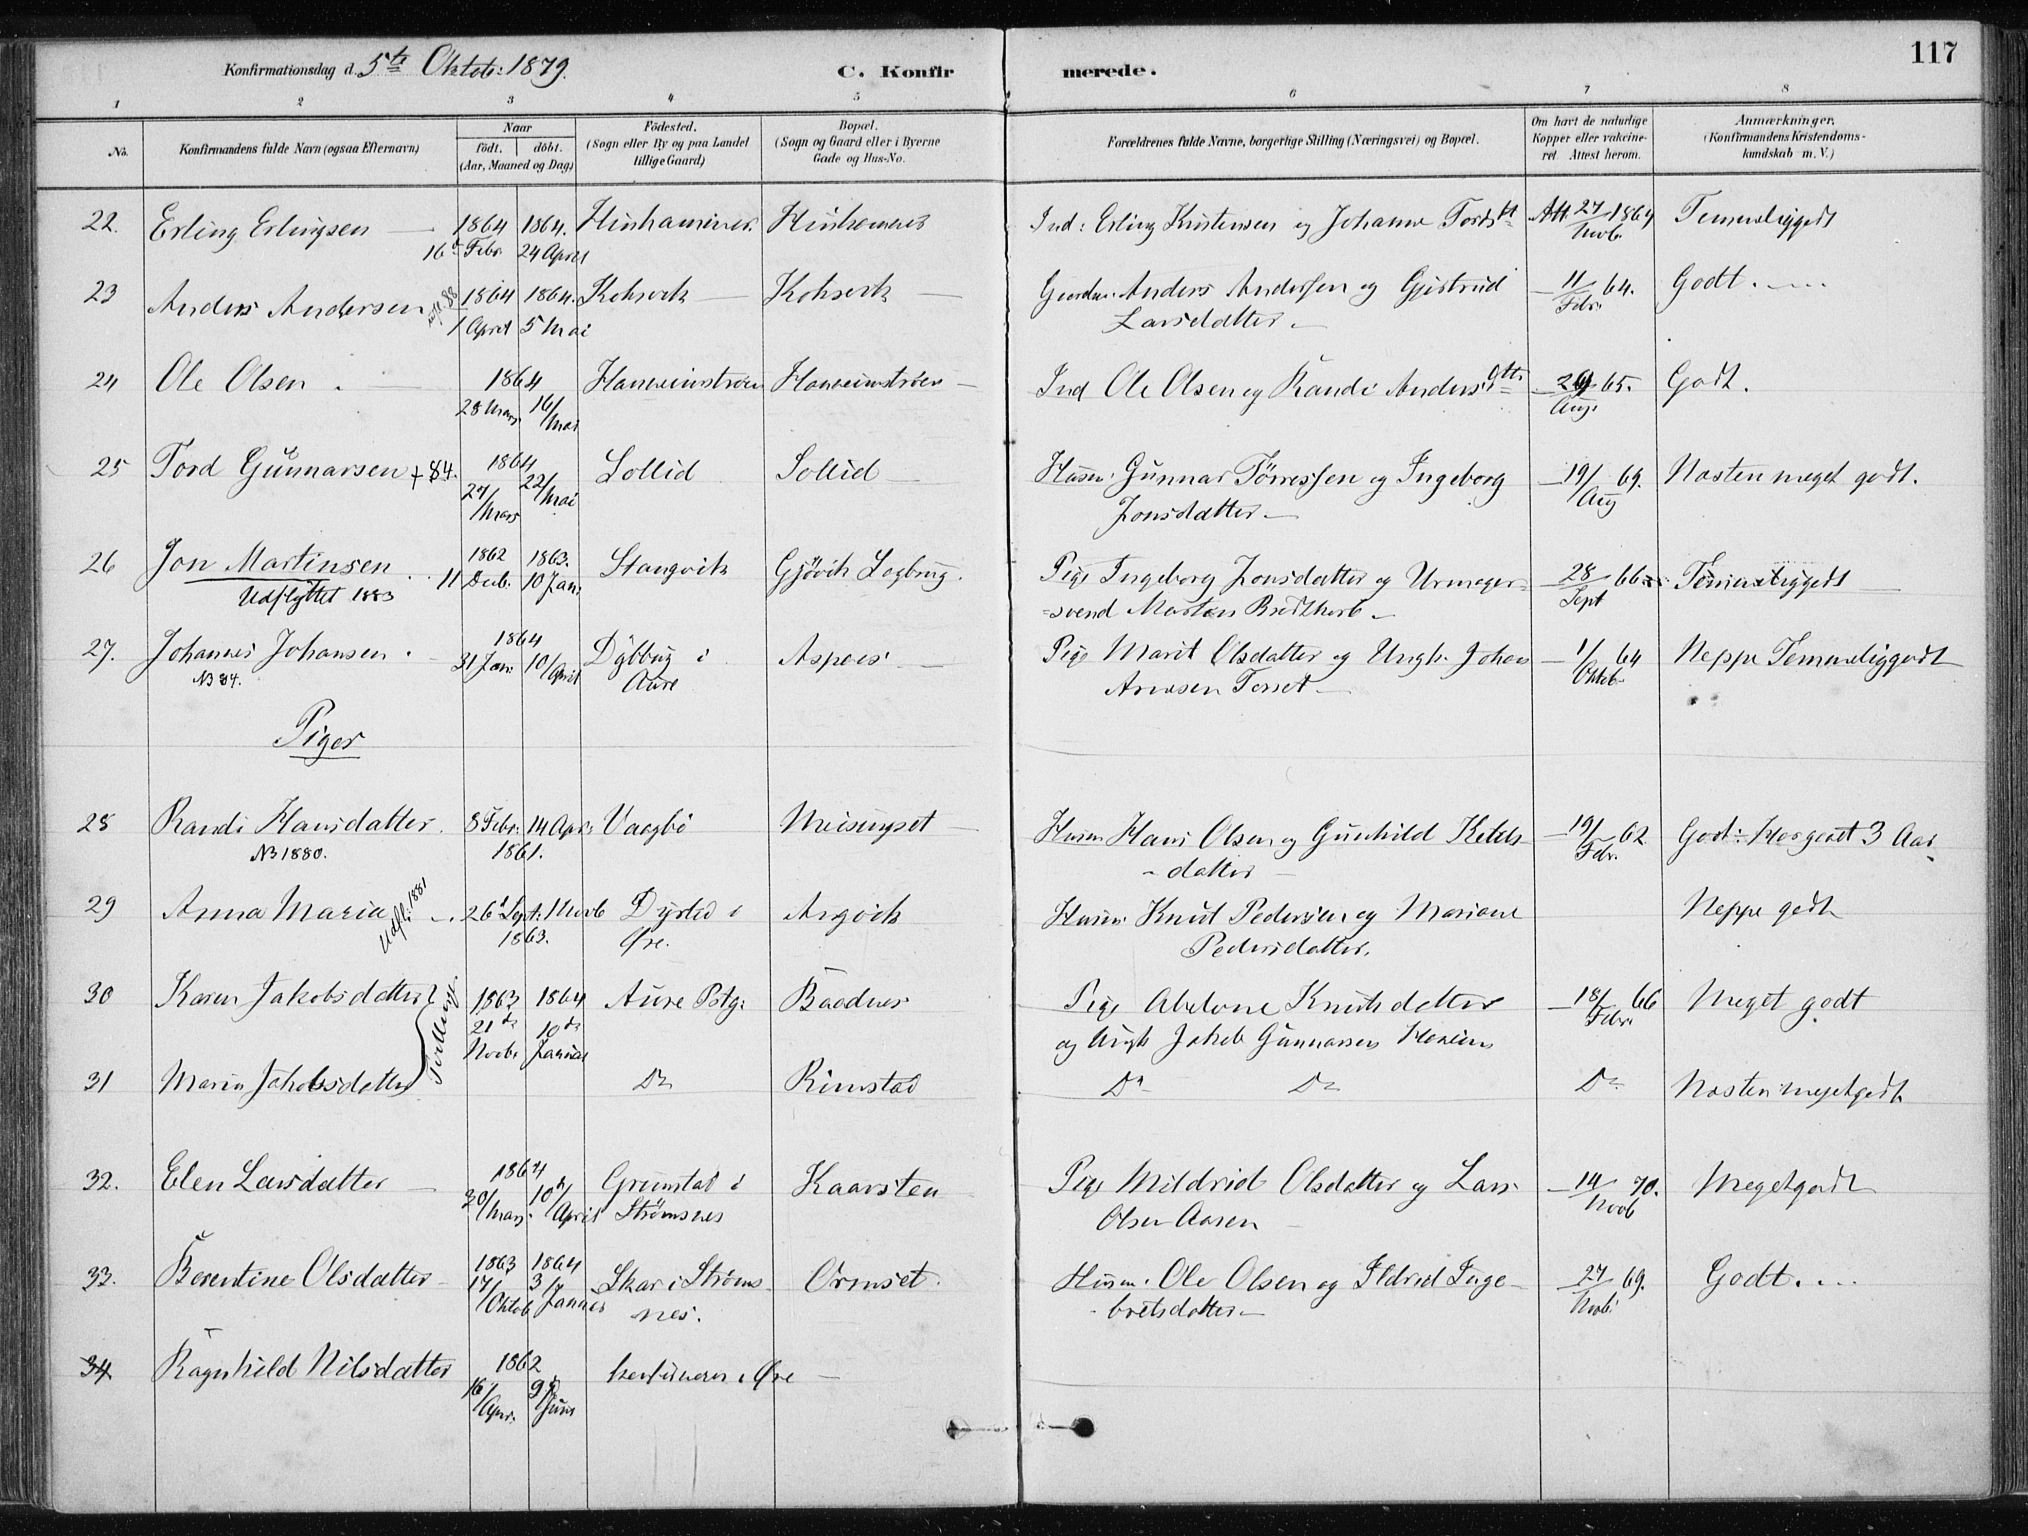 Konfirmationsdag d. 5te Oktob: 1879. C. Konfirmerede. 117
1 2 3 4 5 6 7 8
No. Konfirmandens fulde Navn (ogsaa Efternavn) Naar födt. döbt. (Aar, Maaned og Dag) Födested. (Sogn eller By og paa Landet tillige Gaard) Bopæl. (Sogn og Gaard eller i Byerne Gade og Hus-No. Forældrenes fulde Navne, borgerlige Stilling (Næringsvei) og Bopæl. Om havt de naturlige Kopper eller vakcineret Attest herom. Anmærkninger. (Konfirmandens Kristendomskundskab m. V.)
22. Erling Erlingsen 1864 16d Febr. 1864. 24 April Ind: Erling Kristensen og Johanne Tordsdt Att. 27/Novb. 1864 Temmeliggodt
23 Anders Andersen 1864 1 April 1864. 5 Mai Anders Andersen og Gjertrud
Larsdatter 11/Febr. 64. Godt.
24 Ole Olsen 1864 28 Mars 16/Mai Ind Ole Olsen og Randi Andersdtr. Aug. 65. Godt.
25 Tord Gunnarsen + 84. 1864 27/Mars 22/Mai Sollid Sollid Husm: Gunnar Törressen og Ingeborg
Jonsdatter 19/Aug 69. Nästen meget godt.
26 Jon Martinsen 1862 11 Decb. 1863. 10 Jan. Stangvik Gjövik Sagbrug. Pige Ingeborg Jonsdatter og Urmager=
Udflyttet 1883 =svend Morten 28/Sept 66 Temmeliggodt
27. Johannes Johansen 1864 31 Jan. 10/April i Aure Aspøes Pige Marit Olsdatter og Ungk. Johan
N3 84. Arnesen 1/Oktob. 64 Neppe Temmeliggodt
Piger
28 Randi Hansdatter 8 Febr. 14 Apr. 1861. Vaagbö Meisingset Husm Hans Olsen og Gunhild Ketels-
N3 1880. datter 19/Febr. 62 Godt 3 Aar
29 Anna Maria Udfl. 1881 26d Sept. 1 Novb 1863. i Øre. Angvik Husm: Knut Pedersen og Mariane
Pedersdatter. Neppe godt
30 Karen Jakobsdatter Tvillinger. 1863 21de Novb. 1864 10de Januar Aure Pstg: Baadnes Pige Abelone Knutsdatter
og Ungk Jakob Gunnarsen 18/Febr. 66 Meget godt
31 Maria Jakobsdatter Do Rimstad Do Do Do Nästen megetgodt
32. Elen Larsdatter 1864 30/Mars. 10d/April Grimstad i Strömsnes Kaarsten Pige Mildrid Olsdatter og Lars
Olsen Aasen 14/Novb 70. Megetgodt
33. Berentine Olsdatter 1863 17/Oktob 1864 3/Januar Skar i Strömsnes. Ormset. Husm. Ole Olsen og Ildrid Inge-
bretsdatter 27/Novb. 69. Godt.
34 Ragnhild Nilsdatter 1862 16/Apr. 9d/Juni i Øre